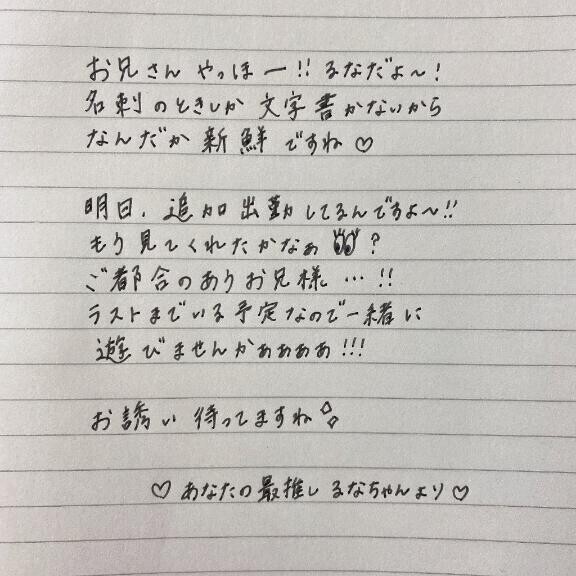 お兄さん やっほー!! るなだよ〜!
名刺のときしか 文字書かないから
なんだか 新鮮ですね♡
明日、追加出勤してるんですよ〜!!
もう見てくれたかなぁ👀?
ご都合のありお兄様…!!
ラストまでいる予定なので一緒に
遊びませんかぁぁぁぁ!!!
お誘い 待ってますね✧
♡ あなたの最推し るなちゃんより♡